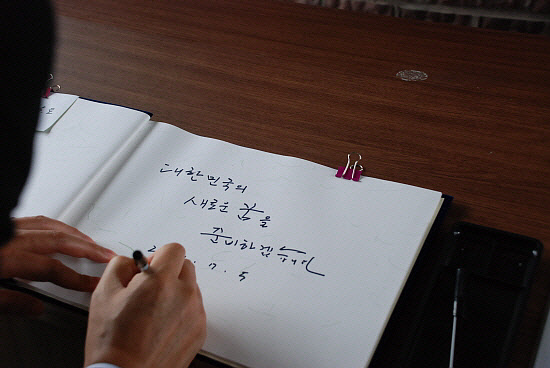 대한민국의
새로운 꿈을
준비하겠습니다
2 . 7. 5